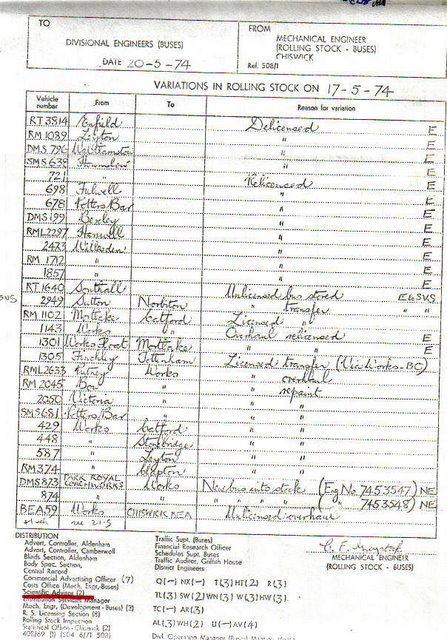 TO
DIVISIONAL ENGINEERS (BUSES)
DATE 20-5-74
FROM
MECHANICAL ENGINEER
(ROLLING STOCK - BUSES)
CHISWICK
Ref. 508/1
VARIATIONS IN ROLLING STOCK ON 17-5-74
Vehicle number From To Reason for variation
RT 3814 Enfield Delicensed E
RM 1089 Leyton " E
DMS 796 Walthamstow " E
SMS 638 Hounslow " E
721 " Relicensed E
698 Fulwell " E
678 Potters Bar " E
DMS 199 Bexley " E
RML 2297 Hanwell " E
2473 Willesden " E
RM 1712 " " E
1857 " " E
RT 1640 Southall Unlicensed bus stored E & SUS
2949 Sutton Norbiton " transfer " "
RM 1102 Mortlake Catford Licensed "
1143 Works " Overhaul relicensed E
1301 Works Float Mortlake " " E
1305 Finchley Tottenham Licensed transfer (Via Works-BC)
RML 2633 Putney Works " overhaul
RM 2045 Bow " " repaint
2050 Victoria " " "
SMS 681 Potters Bar " " "
429 Works Catford " "
448 " Stockbridge " "
587 " Leyton " "
RM 374 " Clapton " "
DMS 873 PARK ROYAL COACHWORKS Works New bus into stock (Eng No. 7453547) NE
874 " " " ( " 7453548) NE
BEA 59 Works CHISWICK BEA Unlicensed overhaul
see 21.5
DISTRIBUTION
Advert. Controller, Aldenham
Advert. Controller, Camberwell
Blinds Section, Aldenham
Body Spec. Section,
Central Record
Commercial Advertising Officer (7)
Costs Office (Mech. Engr.-Buses)
Scientific Adviser (2)
Distribution Services Manager
Mech. Engr. (Development - Buses) (3)
R. S. Licensing Section (3)
Rolling Stock Inspection
Statistical Office - Chiswick (2)
Traffic Supt. (Buses)
Financial Research Officer
Schedules Supt. Buses
Traffic Auditor, Griffith House
District Engineers
Q(-) NX(-) T(3) HT(2) R(3)
TL(3) SW(2) WN(3) GM(3) HW(3)
TC(-) AR(3)
AL(3) WH(2) U(-) AV(4)
MECHANICAL ENGINEER
(ROLLING STOCK - BUSES)